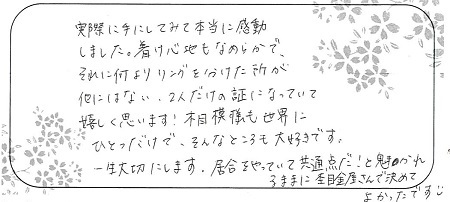 実際に手にしてみて本当に感動
しました。着け心地もなめらかで、
それに何よりリングを分けた所が
他にはない、2人だけの証になっていて
嬉しく思います！木目模様も世界に
ひとつだけで、そんなところも大好きです。
一生大切にします。居合をやっていて共通点だ！と魅かれ
そのままに杢目金屋さんで決めて
よかったです